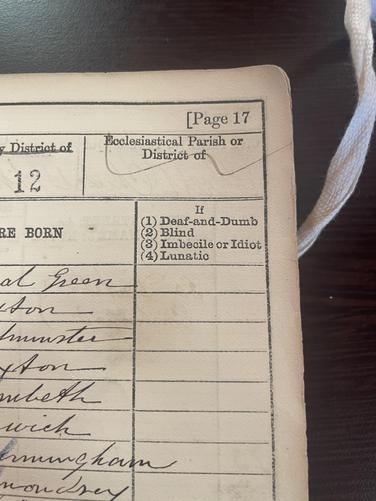 [Page 17
y District of
Ecclesiastical Parish or
District of
12
RE BORN
If
(1) Deaf-and-Dumb
(2) Blind
(3) Imbecile or Idiot
(4) Lunatic
al Green
xton
dminster
xton
mbeth
wich
rmingham
mondsey